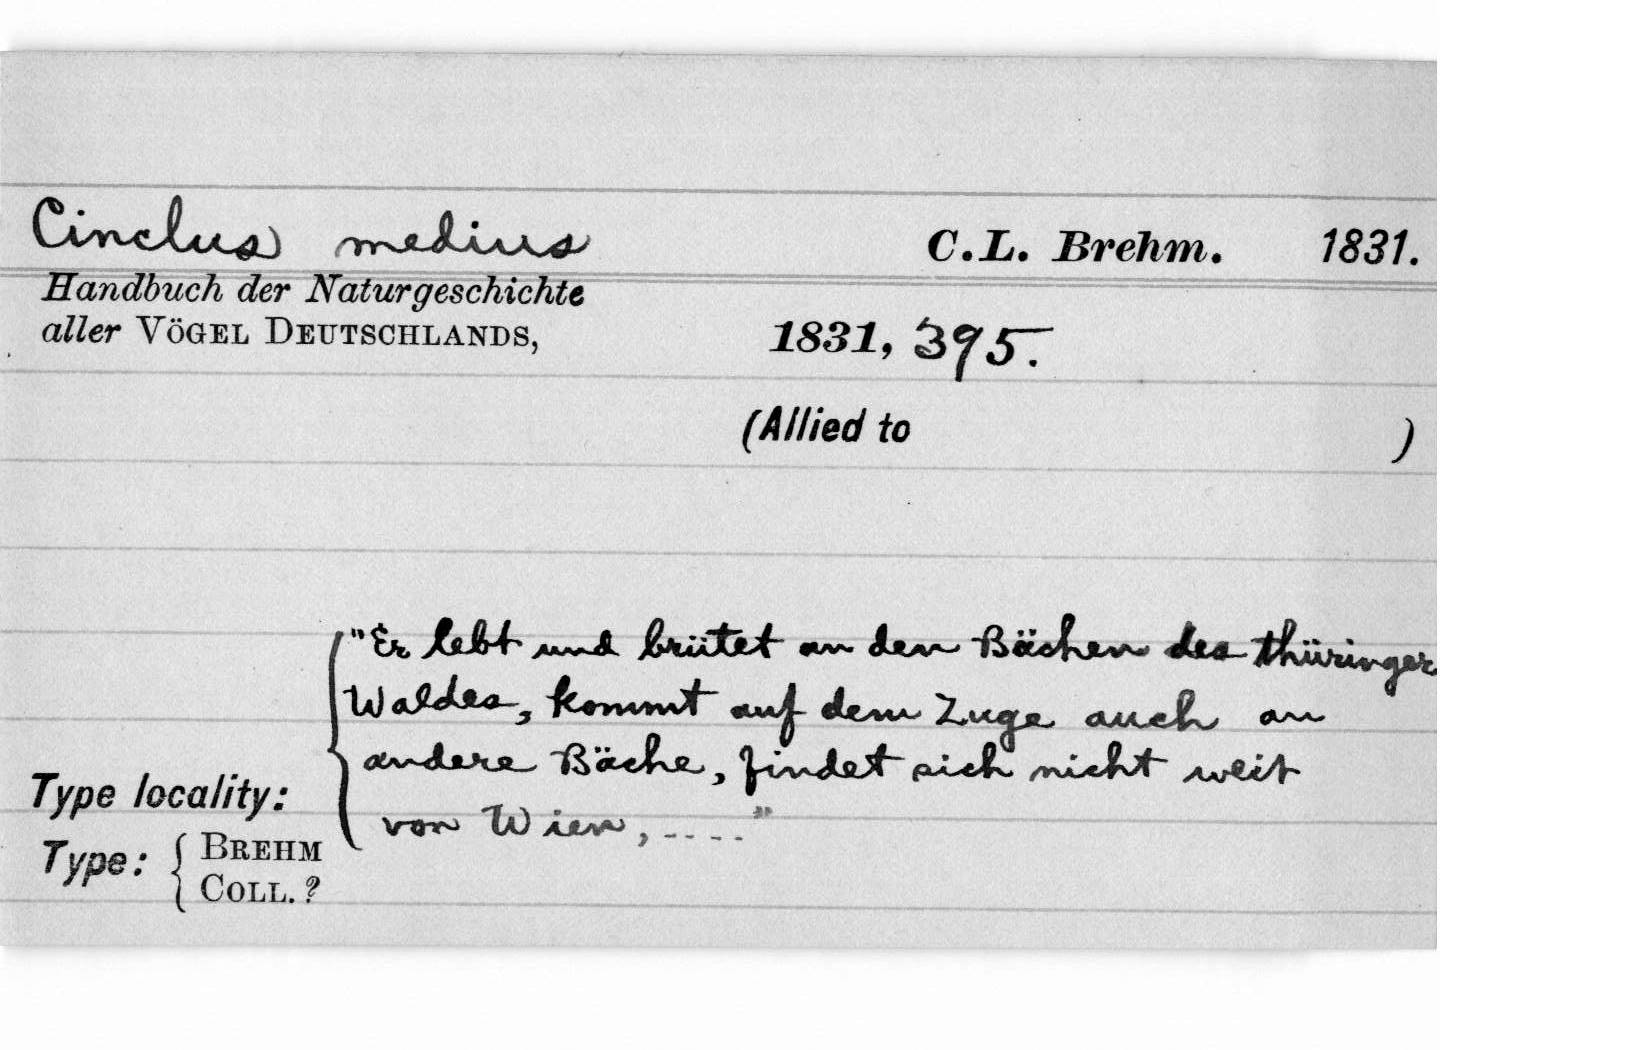 Cinclus medius C.L. Brehm. 1831.
Handbuch der Naturgeschichte
aller VÖGEL DEUTSCHLANDS, 1831, 395.
(Allied to )
"Er lebt und brütet an den Bächen des thüringer
Waldes, kommt auf dem Zuge auch an
andere Bäche, findet sich nicht weit
von Wien, ...."
Type locality:
Type: { BREHM
COLL. ?